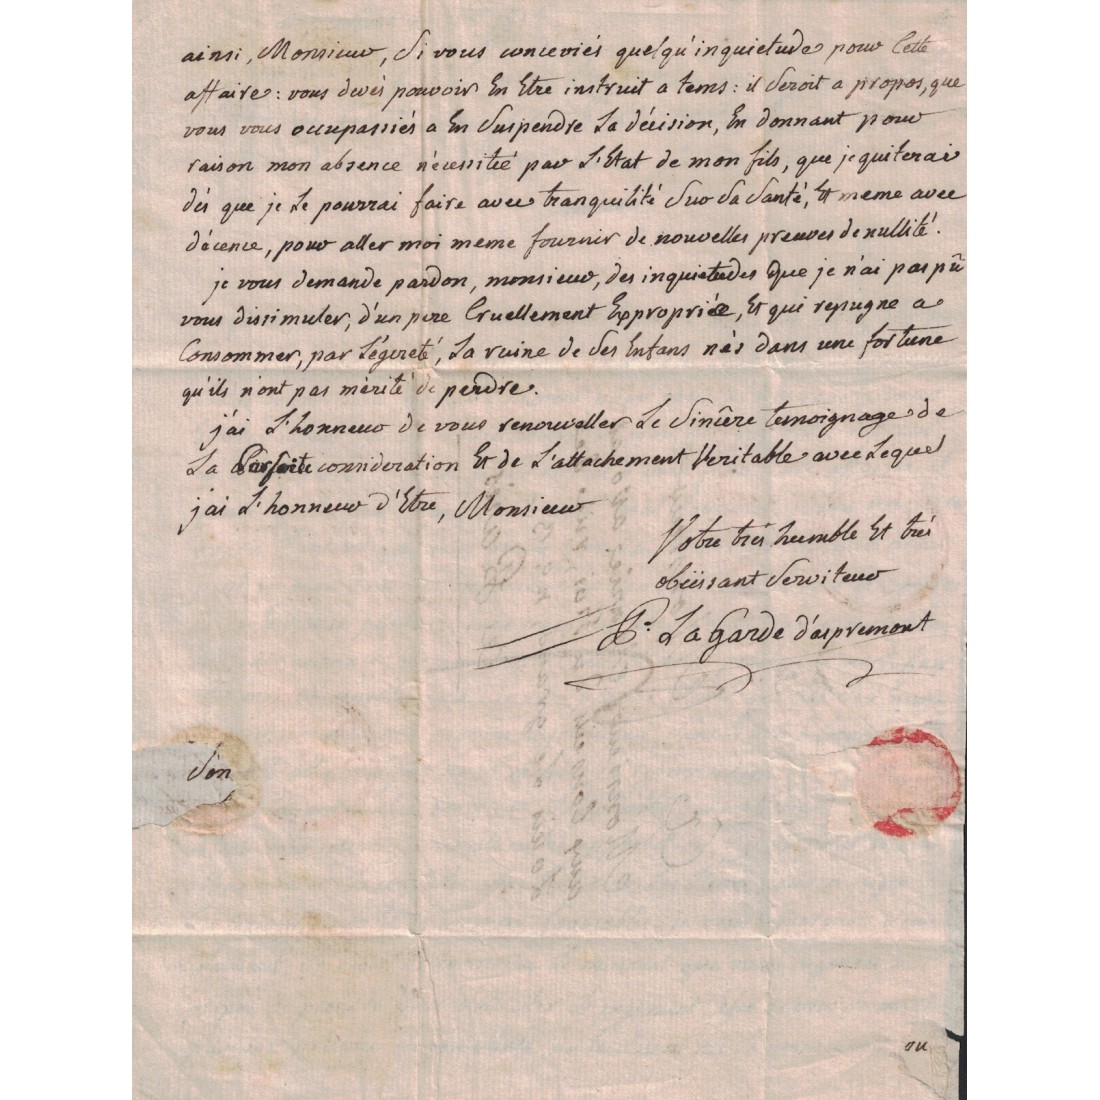 ainsi, Monsieur, Si vous conceviés quelqu'inquietude pour Cette
affaire : vous devés pouvoir En Etre instruit a tems : il Seroit a propos, que
vous vous occupassiés a En Suspendre La décision, En donnant pour
raison mon absence nécessitée par L'Etat de mon fils, que je quiterai
dés que je Le pourrai faire avec tranquilité Sur Sa Santé, Et meme avec
décence, pour aller moi meme fournir de nouvelles preuves de nullité.
je vous demande pardon, monsieur, des inquietudes que je n'ai pas pû
vous dissimuler, d'un pere Cruellement Exproprièe, Et qui repugne a
Consommer, par Légereté, La ruine de Ses Enfans nés dans une fortune
qu'ils n'ont pas mérité de perdre.
j'ai L'honneur de vous renouveller Le Sincère temoignage de
La Parfaite consideration Et de L'attachement Veritable avec Lequel
j'ai L'honneur d'Etre, Monsieur
Votre trés humble Et trés
obéissant Serviteur
P. La Garde d'aspremont
Son
ou